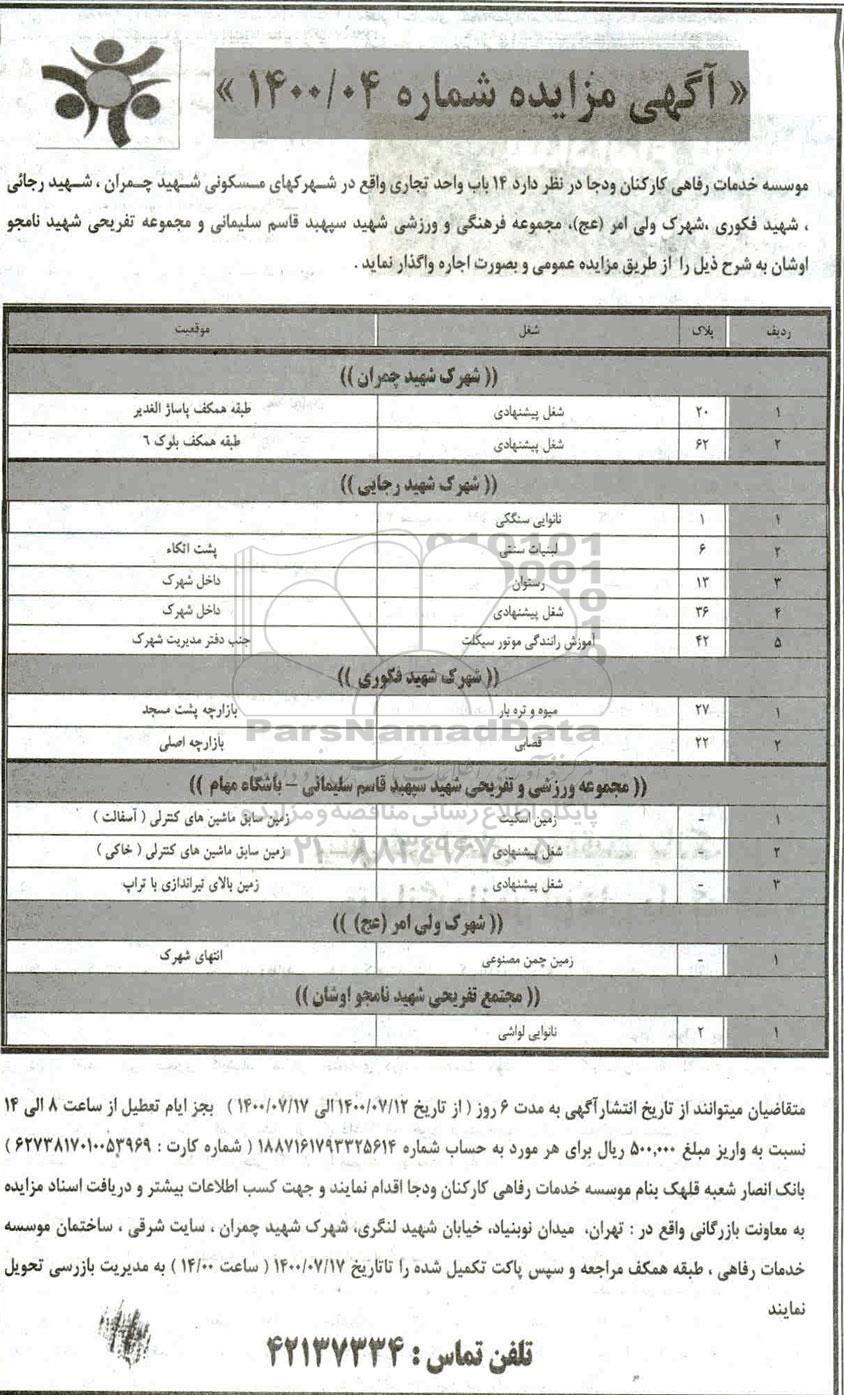 « آگهی مزایده شماره ۱۴۰۰/۰۴ »
موسسه خدمات رفاهی کارکنان ودجا در نظر دارد ۱۴ باب واحد تجاری واقع در شهرکهای مسکونی شهید چمران ، شهید رجائی
، شهید فکوری ،شهرک ولی امر (عج)، مجموعه فرهنگی و ورزشی شهید سپهبد قاسم سلیمانی و مجموعه تفریحی شهید نامجو
اوشان به شرح ذیل را از طریق مزایده عمومی و بصورت اجاره واگذار نماید .
ردیف پلاک شغل موقعیت
(( شهرک شهید چمران ))
۱ ۲۰ شغل پیشنهادی طبقه همکف پاساژ الغدیر
۲ ۶۲ شغل پیشنهادی طبقه همکف بلوک ٦
(( شهرک شهید رجایی ))
۱ ۱ نانوایی سنگکی
۲ ۶ لبنیات سنتی پشت اتکاء
۳ ۱۳ رستوان داخل شهرک
۴ ۳۶ شغل پیشنهادی داخل شهرک
۵ ۴۲ آموزش رانندگی موتور سیکلت جنب دفتر مدیریت شهرک
(( شهرک شهید فکوری ))
۱ ۲۷ میوه و تره بار بازارچه پشت مسجد
۲ ۲۲ قصابی بازارچه اصلی
(( مجموعه ورزشی و تفریحی شهید سپهبد قاسم سلیمانی – باشگاه مهام ))
۱ - زمین اسکیت زمین سابق ماشین های کنترلی ( آسفالت )
۲ - شغل پیشنهادی زمین سابق ماشین های کنترلی ( خاکی )
۳ - شغل پیشنهادی زمین بالای تیراندازی با تراپ
(( شهرک ولی امر (عج) ))
۱ - زمین چمن مصنوعی انتهای شهرک
(( مجتمع تفریحی شهید نامجو اوشان ))
۱ ۲ نانوایی لواشی
متقاضیان میتوانند از تاریخ انتشارآگهی به مدت ۶ روز ( از تاریخ ۱۴۰۰/۰۷/۱۲ الی ۱۴۰۰/۰۷/۱۷ ) بجز ایام تعطیل از ساعت ۸ الی ۱۴
نسبت به واریز مبلغ ۵۰۰,۰۰۰ ریال برای هر مورد به حساب شماره ۱۸۸۷۱۶۱۷۹۳۳۲۵۶۱۴ ( شماره کارت : ۶۲۷۳۸۱۷۰۱۰۰۵۳۹۶۹ )
بانک انصار شعبه قلهک بنام موسسه خدمات رفاهی کارکنان ودجا اقدام نمایند و جهت کسب اطلاعات بیشتر و دریافت اسناد مزایده
به معاونت بازرگانی واقع در : تهران، میدان نوبنیاد، خیابان شهید لنگری، شهرک شهید چمران ، سایت شرقی ، ساختمان موسسه
خدمات رفاهی ، طبقه همکف مراجعه و سپس پاکت تکمیل شده را تاتاریخ ۱۴۰۰/۰۷/۱۷ ( ساعت ۱۴/۰۰ ) به مدیریت بازرسی تحویل
نمایند
تلفن تماس : ۴۲۱۳۷۳۳۴
ParsNamadData
پایگاه اطلاع رسانی مناقصه و مزایده